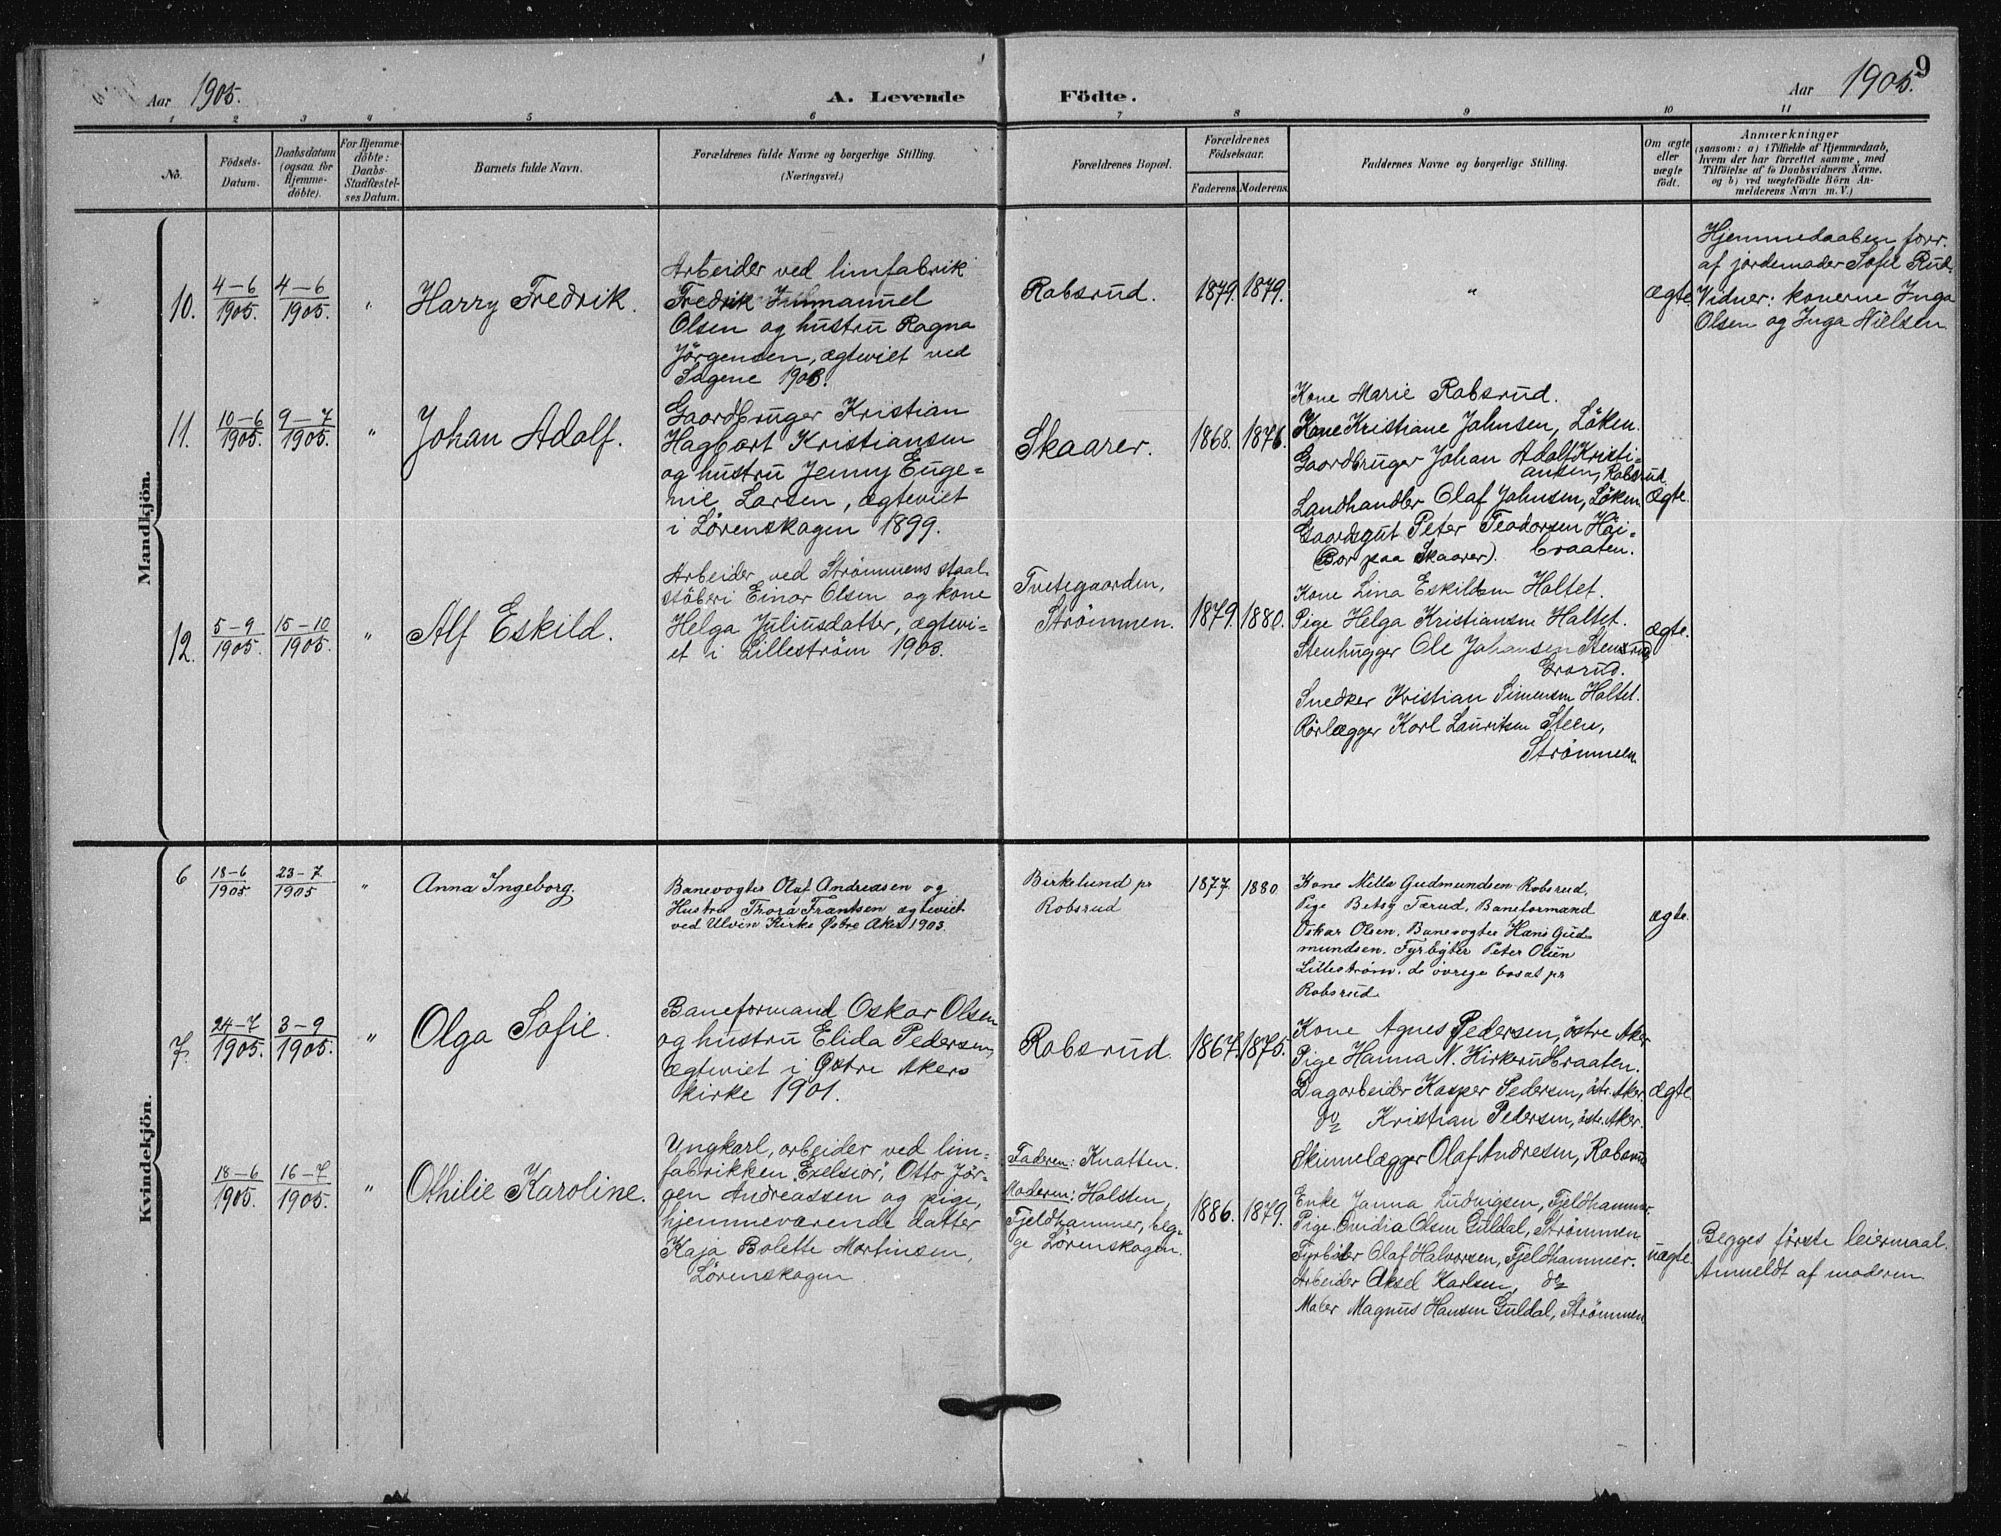 Aar 1905.
A. Levende
Födte.
Aar 1905.
9
1 2 3 4 5 6 7 8 9 10 11
No.
Födsels-
Datum.
Daabsdatum
(ogsaa for
Hjemme-
döbte).
For Hjemme-
döbte:
Daabs-
Stadfæstel-
ses Datum.
Barnets fulde Navn.
Forældrenes fulde Navne og borgerlige Stilling.
(Næringsvei.)
Forældrenes Bopæl.
Forældrenes
Födselsaar.
Faderens. Moderens.
Faddernes Navne og borgerlige Stilling.
Om ægte
eller
uægte
födt.
Anmærkninger
(saasom: a) i Tilfælde af Hjemmedaab,
hvem der har forrettet samme, med
Tilföielse af to Daabsvidners Navne,
og b) ved uægtefödte Börn An-
melderens Navn m. V.)
Mandkjön.
10.
4-6
1905.
4-6
1905.
"
Harry Fredrik.
Arbeider ved limfabrik
Fredrik Immanuel
Olsen og hustru Ragna
Jörgensen, ægteviet ved
Sagene 1903.
Robsrud.
1879. 1879.
"
ægte
Hjemmedaaben forr.
af jordemoder Sofie Rud.
Vidner: konerne Inga
Olsen og Inga Nielsen
11.
10-6
1905.
9-7
1905.
"
Johan Adolf.
Gaardbruger Kristian
Hagbart Kristiansen
og hustru Jenny Euge=
nie Larsen, ægteviet
i Lørenskogen 1899.
Skaarer.
1868. 1876.
Kone Marie Robsrud.
Kone Kristiane Johnsen, Löken.
Gaardbruger Johan Adolf Kristi-
ansen, Robsrud.
Landhandler Olaf Johnsen, Löken
Gaardsgut Peter Teodorsen Höi-
(Bor paa Skaarer). braaten.
ægte.
12.
5-9
1905.
15-10
1905.
"
Alf Eskild.
Arbeider ved Strømmens staal-
støberi Einar Olsen og kone
Helga Juliusdatter, ægtevi-
et i Lilleström 1903.
Tvetegaarden,
Strømmen.
1879. 1880.
Kone Lina Eskildsen Holtet.
Pige Helga Kristiansen Holtet.
Stenhugger Ole Johansen Stensrud,
Grorud.
Snedker Kristian Simensen Holtet.
Rörlægger Karl Lauritsen Steen,
Strömmen
ægte.
Kvindekjön.
6
18-6
1905
23-7
1905
"
Anna Ingeborg.
Banevogter Olaf Andreasen og
Hustru Thora Frantsen ægteviet
ved Ulvin Kirke Østre Aker 1903.
Birkelund pr
Robsrud
1877. 1880
Kone Milla Gudmundsen Robsrud,
Pige Betsy Tærud, Baneformand
Oskar Olsen, Banevogter Hans Gud-
mundsen. Fyrbøter Peter Olsen
Lillestrøm. de övrige bosat pr
Robsrud
ægte.
7.
24-7
1905.
3-9
1905.
"
Olga Sofie.
Baneformand Oskar Olsen
og hustru Elida Pedersen,
ægteviet i Østre Akers
kirke 1901.
Robsrud.
1867. 1875.
Kone Agnes Pedersen, östre Aker
Pige Hanna N. Kirkerudbraaten.
Dagarbeider Kasper Pedersen, östr. Aker.
do Kristian Pedersen, östr. Aker.
Skinnelægger Olaf Andresen, Robsrud
ægte
18-6
1905.
16-7
1905.
"
Othilie Karoline.
Ungkarl, arbeider ved lim-
fabrikken "Exelsior", Otto Jör-
gen Andreassen og pige,
hjemmeværende datter
Kaja Bolette Martinsen,
Lørenskogen
Faderen: Knatten.
Moderen: Holsten,
Fjeldhammer, beg-
ge Lörenskogen.
1886. 1879.
Enke Janna Ludvigsen, Fjeldhammer.
Pige Ovidia Olsen Guldal, Strömmen
Fyrböter Olaf Halvorsen, Fjeldhammer.
Arbeider Aksel Karlsen, do
Maler Magnus Hansen Guldal, Strömmen.
uægte.
Begges förste leiermaal.
Anmeldt af moderen